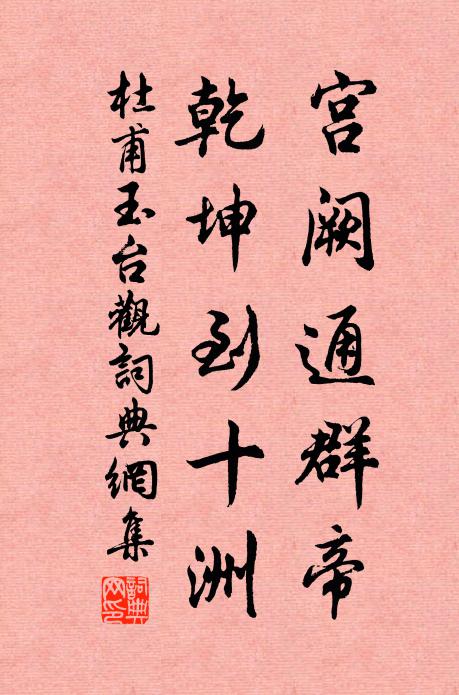 宫阙通群帝
乾坤到十洲
杜甫玉台觀詞典網集
詞典网印